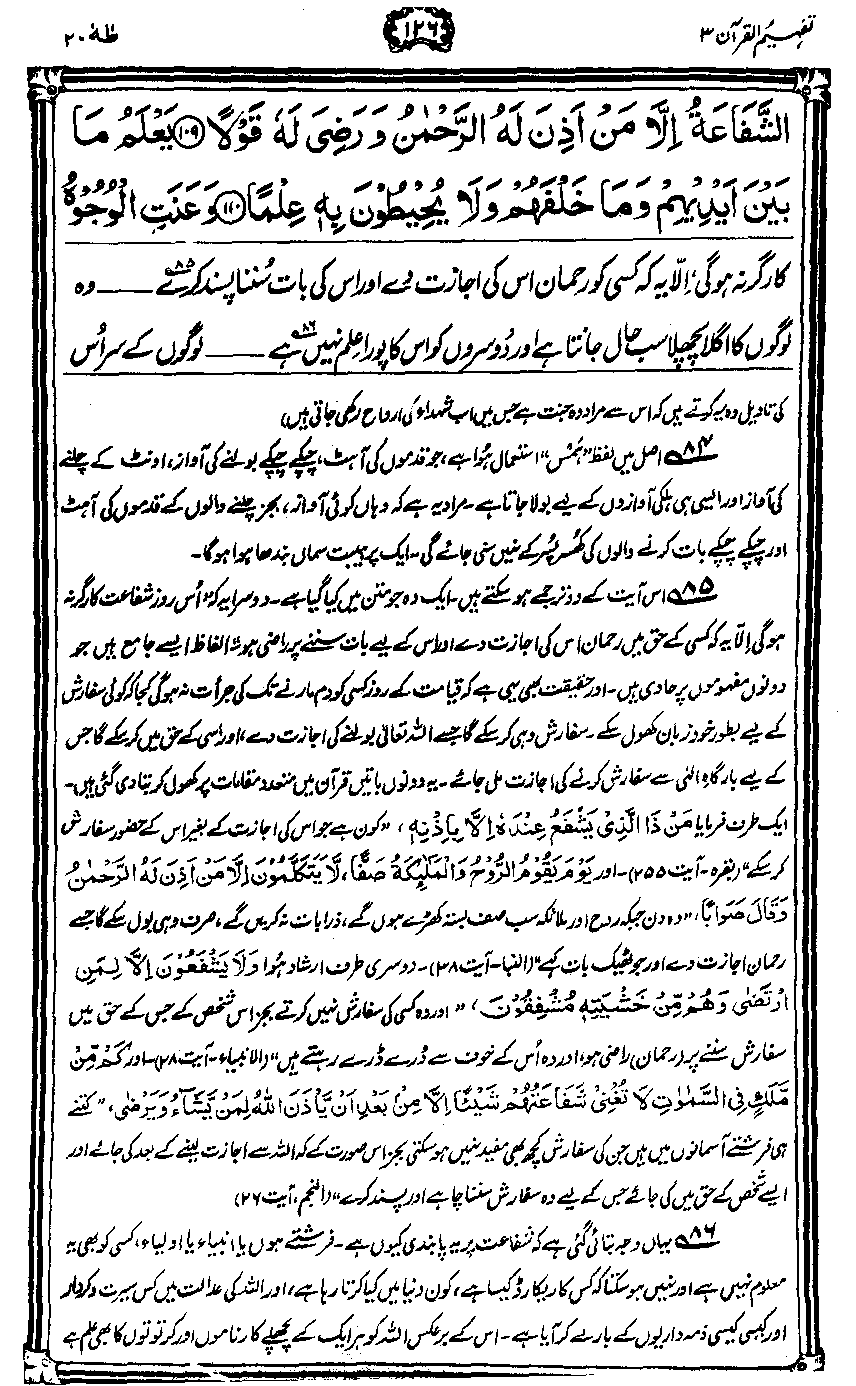 تفہیم القرآن ۳
۱۲۶
طٰهٰ ۲۰
الشَّفَاعَةُ اِلَّا مَنْ اَذِنَ لَهُ الرَّحْمٰنُ وَرَضِیَ لَهٗ قَوْلًا ﴿۱۰۹﴾ یَعْلَمُ مَا
بَیْنَ اَیْدِیْهِمْ وَمَا خَلْفَهُمْ وَلَا یُحِیْطُوْنَ بِهٖ عِلْمًا ﴿۱۱۰﴾ وَعَنَتِ الْوُجُوْهُ
کارگر نہ ہوگی، اِلّا یہ کہ کسی کو رحمان اس کی اجازت دے اور اس کی بات سُننا پسند کرے ۸۵ ــــ وہ
لوگوں کا اگلا پچھلا سب حال جانتا ہے اور دُوسروں کو اس کا پورا علم نہیں ہے ۸۶ ــــ لوگوں کے سر اُس
کی تاویل وہ یہ کرتے ہیں کہ اس سے مراد وہ جنت ہے جس میں اب شہداء کی ارواح رکھی جاتی ہیں)
۸۴ اصل میں لفظ ”ہَمْس“ استعمال ہُوا ہے، جو قدموں کی آہٹ، چپکے چپکے بولنے کی آواز، اونٹ کے چلنے
کی آواز اور ایسی ہی ہلکی آوازوں کے لیے بولا جاتا ہے۔ مراد یہ ہے کہ وہاں کوئی آواز، بجز چلنے والوں کے قدموں کی آہٹ
اور چپکے چپکے بات کرنے والوں کی کھُسر پُسر کے نہیں سنی جائے گی۔ ایک پُر ہیبت سماں بندھا ہوا ہوگا۔
۸۵ اس آیت کے دو ترجمے ہو سکتے ہیں۔ ایک وہ جو متن میں کیا گیا ہے۔ دوسرا یہ کہ ”اُس روز شفاعت کارگر نہ
ہوگی اِلّا یہ کہ کسی کے حق میں رحمان اس کی اجازت دے اور اس کے لیے بات سننے پر راضی ہو“ الفاظ ایسے جامع ہیں جو
دونوں مفہوموں پر حاوی ہیں۔ اور حقیقت بھی یہی ہے کہ قیامت کے روز کسی کو دم مارنے تک کی جرأت نہ ہوگی کجا کہ کوئی سفارش
کے لیے بطور خود زبان کھول سکے۔ سفارش وہی کر سکے گا جسے اللہ تعالیٰ بولنے کی اجازت دے، اور اسی کے حق میں کر سکے گا جس
کے لیے بارگاہِ الٰہی سے سفارش کرنے کی اجازت مل جائے۔ یہ دونوں باتیں قرآن میں متعدد مقامات پر کھول کر بتا دی گئی ہیں۔
ایک طرف فرمایا مَنْ ذَا الَّذِیْ یَشْفَعُ عِنْدَهٗ اِلَّا بِاِذْنِهٖ، ”کون ہے جو اس کی اجازت کے بغیر اس کے حضور سفارش
کر سکے“ (بقرہ۔ آیت ۲۵۵)۔ اور یَوْمَ یَقُوْمُ الرُّوْحُ وَالْمَلٰٓئِكَةُ صَفًّا، لَّا یَتَكَلَّمُوْنَ اِلَّا مَنْ اَذِنَ لَهُ الرَّحْمٰنُ
وَقَالَ صَوَابًا، ”وہ دن جبکہ روح اور ملائکہ سب صف بستہ کھڑے ہوں گے، ذرا بات نہ کریں گے، صرف وہی بول سکے گا جسے
رحمان اجازت دے اور جو ٹھیک بات کہے“ (النبا۔ آیت ۳۸)۔ دوسری طرف ارشاد ہُوا وَلَا یَشْفَعُوْنَ اِلَّا لِمَنِ
ارْتَضٰی وَهُمْ مِّنْ خَشْیَتِهٖ مُشْفِقُوْنَ، ”اور وہ کسی کی سفارش نہیں کرتے بجز اس شخص کے جس کے حق میں
سفارش سننے پر (رحمان) راضی ہو، اور وہ اُس کے خوف سے ڈرے ڈرے رہتے ہیں“ (الانبیاء۔ آیت ۲۸)۔ اور كَمْ مِّنْ
مَّلَكٍ فِی السَّمٰوٰتِ لَا تُغْنِیْ شَفَاعَتُهُمْ شَیْئًا اِلَّا مِنْۢ بَعْدِ اَنْ یَّاْذَنَ اللهُ لِمَنْ یَّشَآءُ وَیَرْضٰی، ”کتنے
ہی فرشتے آسمانوں میں ہیں جن کی سفارش کچھ بھی مفید نہیں ہو سکتی بجز اس صورت کے کہ اللہ سے اجازت لینے کے بعد کی جائے اور
ایسے شخص کے حق میں کی جائے جس کے لیے وہ سفارش سننا چاہے اور پسند کرے“ (النجم، آیت ۲۶)
۸۶ یہاں وجہ بتائی گئی ہے کہ شفاعت پر یہ پابندی کیوں ہے۔ فرشتے ہوں یا انبیاء یا اولیاء، کسی کو بھی یہ
معلوم نہیں ہے اور نہیں ہو سکتا کہ کس کا ریکارڈ کیسا ہے، کون دنیا میں کیا کرتا رہا ہے، اور اللہ کی عدالت میں کس سیرت و کردار
اور کیسی کیسی ذمہ داریوں کے بار لے کر آیا ہے۔ اس کے برعکس اللہ کو ہر ایک کے پچھلے کارناموں اور کرتوتوں کا بھی علم ہے